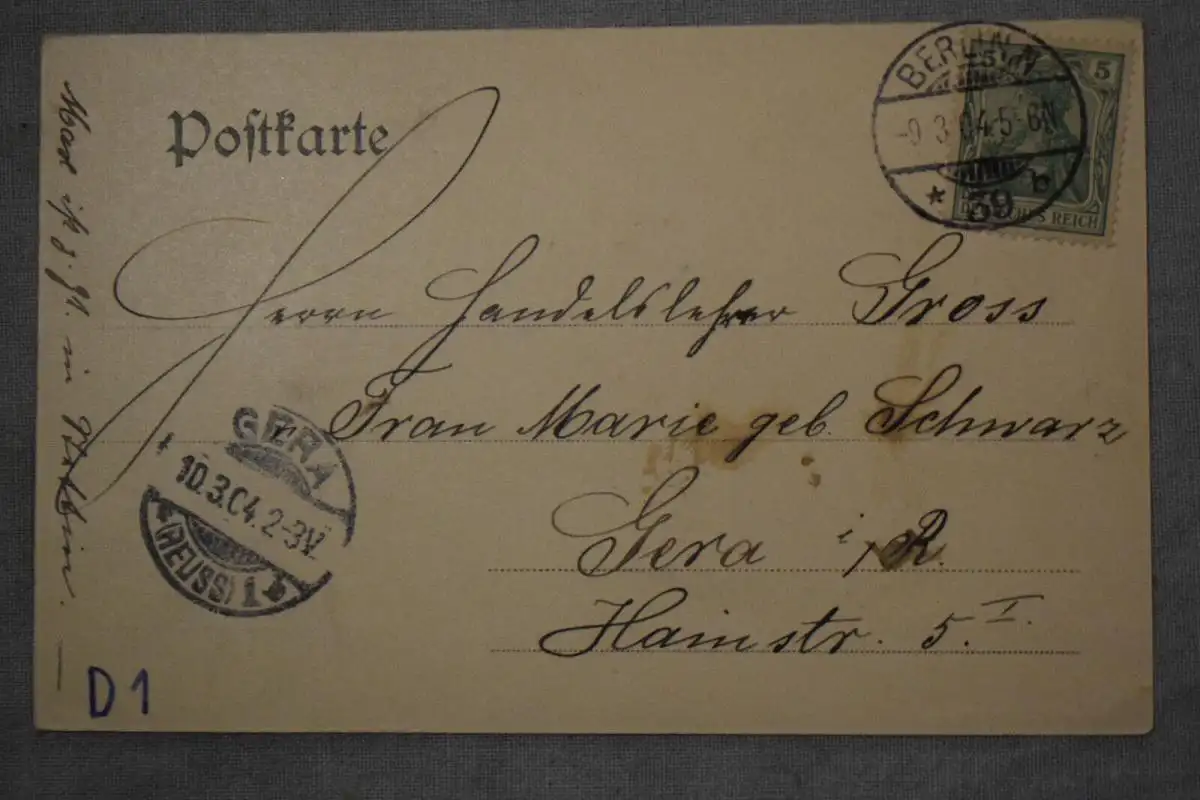 Postkarte
BERLIN N
5
-9.3.04.5-6N
* 39 b
DEUTSCHES REICH
Herrn Handelslehrer Gross
Frau Marie geb. Schwarz
Gera i/R.
Hainstr. 5. I.
GERA
10.3.04.2-3V.
* (REUSS) 1 b
ist z. Zt. in
D 1